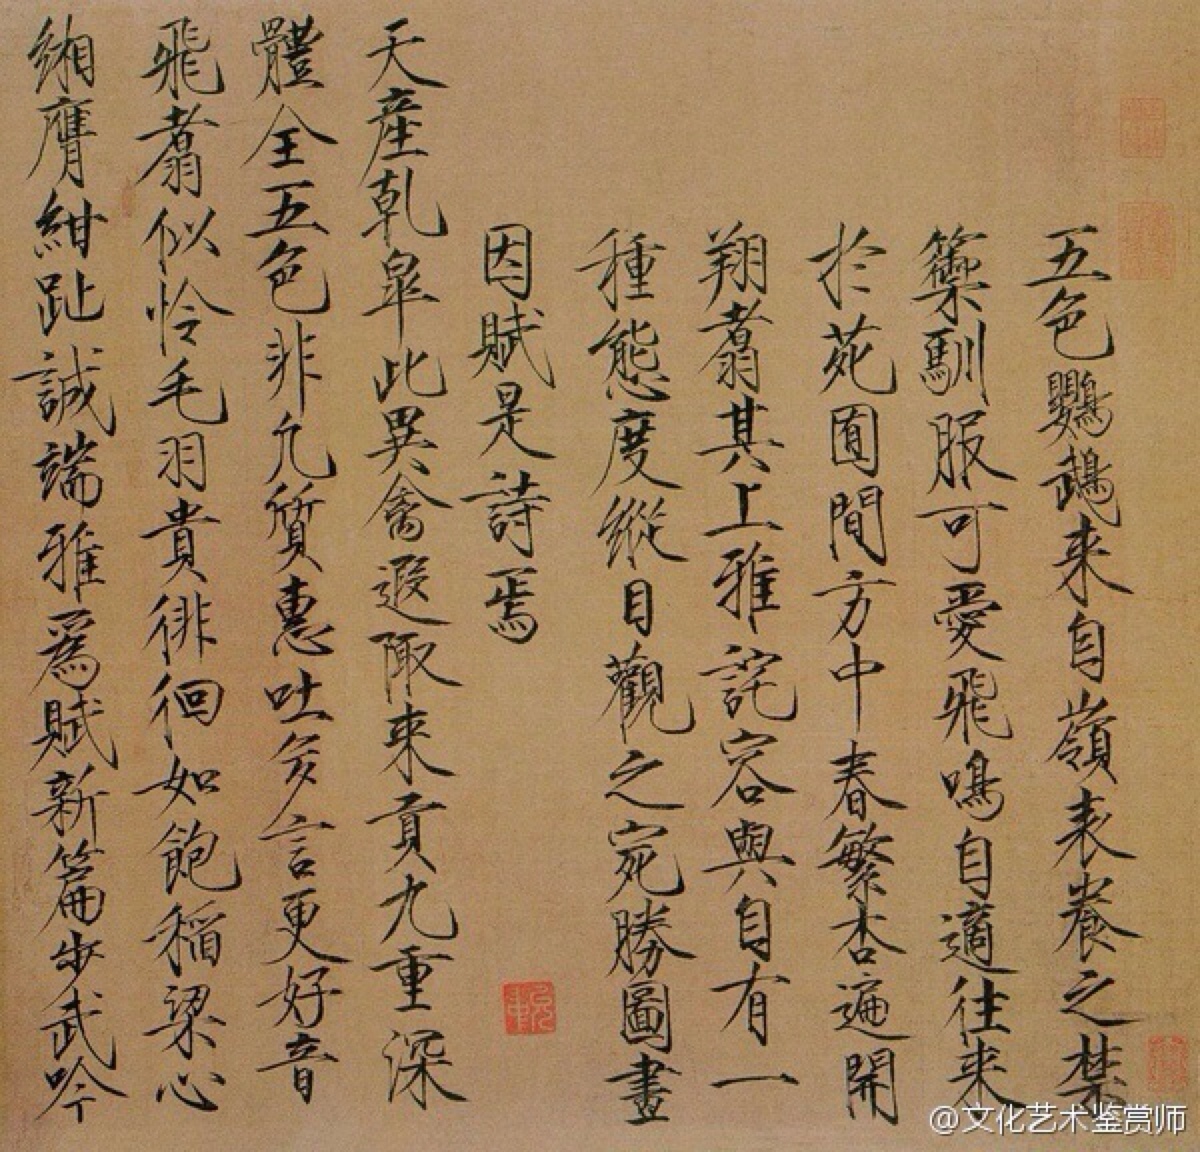 五色鸚鵡来自嶺表養之禁
籞馴服可愛飛鳴自適往来
於苑囿間方中春繁杏遍開
翔翥其上雅詫容與自有一
種態度縱目觀之宛勝圖畫
因賦是詩焉
天產乹皐此異禽遐陬来貢九重深
體全五色非凡質惠吐多言更好音
飛翥似怜毛羽貴徘徊如飽稻粱心
緗膺紺趾誠端雅爲賦新篇步武吟
@文化艺术鉴赏师